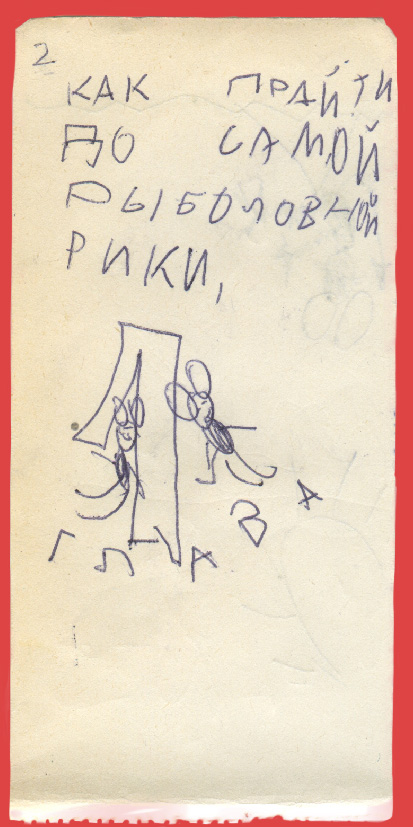 2
КАК ПРАЙТИ
ДО САМОЙ
РЫБОЛОВНОЙ
РИКИ,
1
ГЛАВА